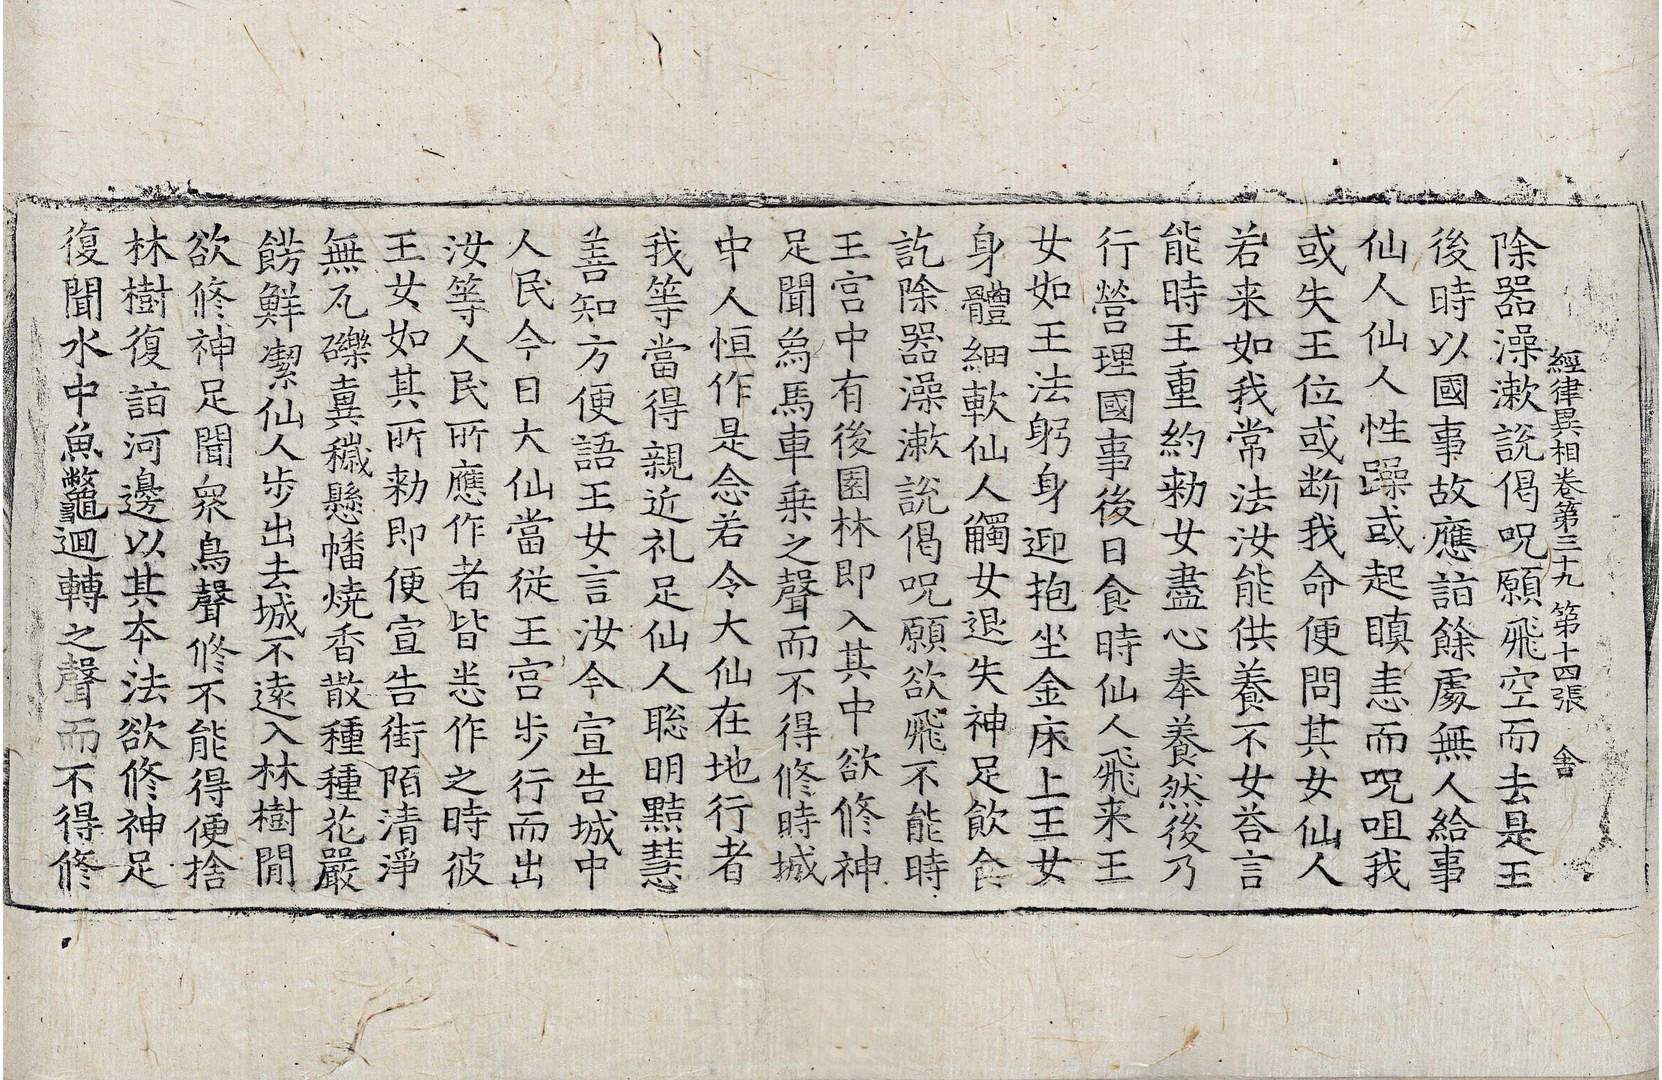 經律異相卷第三十九 第十四張 舍
除器澡漱說偈呪願飛空而去是王
後時以國事故應詣餘處無人給事
仙人仙人性躁或起瞋恚而呪咀我
或失王位或断我命便問其女仙人
若来如我常法汝能供養不女荅言
能時王重約勑女盡心奉養然後乃
行營理國事後日食時仙人飛来王
女如王法躬身迎抱坐金床上王女
身體細軟仙人觸女退失神足飲食
訖除器澡漱說偈呪願欲飛不能時
王宮中有後園林即入其中欲修神
足聞象馬車乗之聲而不得修時城
中人恒作是念若令大仙在地行者
我等當得親近礼足仙人聡明黠慧
善知方便語王女言汝今宣告城中
人民今日大仙當從王宮步行而出
汝等人民所應作者皆悉作之時彼
王女如其所勑即便宣告街陌清淨
無瓦礫糞穢懸幡燒香散種種花嚴
餝鮮潔仙人步出去城不遠入林樹閒
欲修神足聞衆鳥聲修不能得便捨
林樹復詣河邊以其本法欲修神足
復聞水中魚鼈迴轉之聲而不得修